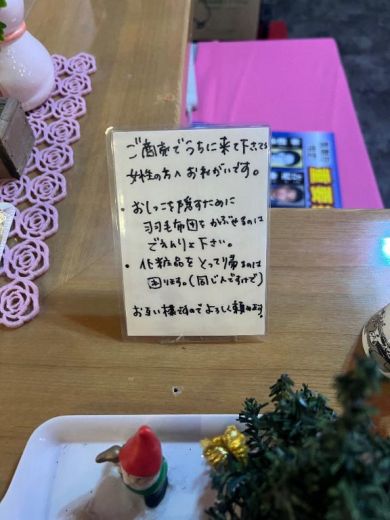 ご商売でうちに来て下さってる
女性の方へお願いです。
・おしっこを隠すために
羽毛布団をかぶせるのは
ごえんりょ下さい。
・化粧品をとって帰るのは
困ります。(同じ人ですけど)
お互い様ですのでよろしく頼みます。